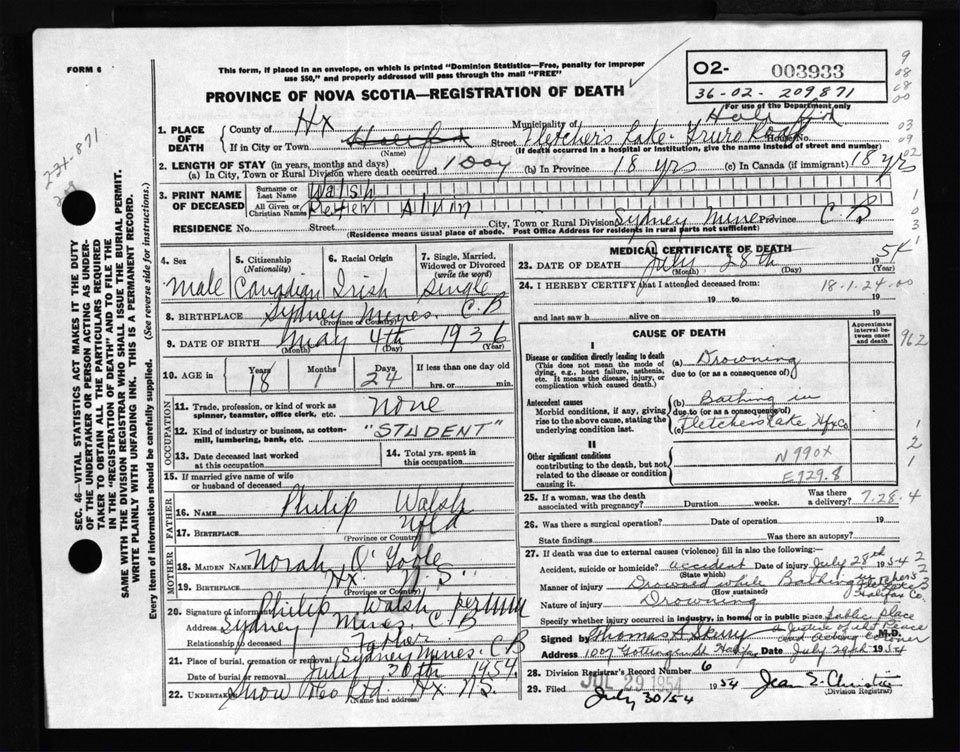 FORM 6
This form, if placed in an envelope, on which is printed "Dominion Statistics—Free, penalty for improper
use $50," and properly addressed will pass through the mail "FREE"
PROVINCE OF NOVA SCOTIA—REGISTRATION OF DEATH
02- 003933
36-02-209871
For use of the Department only
1. PLACE OF DEATH
County of Hx Municipality of Halifax
If in City or Town Halifax (Name) Street Fletcher's Lake Truro Road House No.
(If death occurred in a hospital or institution, give the name instead of street and number)
2. LENGTH OF STAY (in years, months and days)
a) In City, Town or Rural Division where death occurred 1 Day (b) In Province 18 yrs (c) In Canada (if immigrant) 18 yrs
3. PRINT NAME OF DECEASED
Surname or Last Name Walsh
All Given or Christian Names Peter Alvin
RESIDENCE No. Street City, Town or Rural Division Sydney Mines Province C B
(Residence means usual place of abode. Post Office Address for residents in rural parts not sufficient)
4. Sex Male
5. Citizenship (Nationality) Canadian
6. Racial Origin Irish
7. Single, Married, Widowed or Divorced (write the word) Single
8. BIRTHPLACE Sydney Mines. C.B
(Province or Country)
9. DATE OF BIRTH May 4th 1936
(Month) (Day) (Year)
10. AGE in Years 18 Months 1 Days 24 If less than one day hrs. or min.
OCCUPATION
11. Trade, profession, or kind of work as spinner, teamster, office clerk, etc. None
12. Kind of industry or business, as cotton-mill, lumbering, bank, etc. "STUDENT"
13. Date deceased last worked at this occupation
14. Total yrs. spent in this occupation
15. If married give name of wife or husband of deceased
FATHER
16. NAME Philip Walsh
17. BIRTHPLACE Nfld
(Province or Country)
MOTHER
18. MAIDEN NAME Norah O'Toole
19. BIRTHPLACE Hx N.S
(Province or Country)
20. Signature of informant Philip Walsh per
Address Sydney Mines. C.B
Relationship to deceased Father.
21. Place of burial, cremation or removal Sydney Mines. C B
Date of burial or removal July 30th 1954.
22. Undertaker Snow & Co Ltd. Hx. N.S.
(Name and address)
MEDICAL CERTIFICATE OF DEATH
23. DATE OF DEATH July 28th 1954
(Month) (Day) (Year)
24. I HEREBY CERTIFY that I attended deceased from 18.1.24.00
19 to 19
and last saw h alive on 19
CAUSE OF DEATH
Approximate interval between onset and death
I
Disease or condition directly leading to death
(This does not mean the mode of dying, e.g., heart failure, asthenia, etc. It means the disease, injury, or complication which caused death.)
(a) Drowning
due to (or as a consequence of)
Antecedent causes
Morbid conditions, if any, giving rise to the above cause, stating the underlying condition last.
(b) Bathing in
due to (or as a consequence of)
(c) Fletchers Lake Hfx Co
II
Other significant conditions contributing to the death, but not related to the disease or condition causing it.
N990X
E929.8
962
25. If a woman, was the death associated with pregnancy? Duration weeks. Was there a delivery? 7.28.4
26. Was there a surgical operation? Date of operation 19
State findings Was there an autopsy?
27. If death was due to external causes (violence) fill in also the following:
Accident, suicide or homicide? accident Date of injury July 28th 1954
(State which)
Manner of injury Drowned while Bathing Fletcher's Lake Halifax Co.
(How sustained)
Nature of injury Drowning
Specify whether injury occurred in industry, in home, or in public place public place
Signed by Thomas A Skerry a Justice of the Peace and acting Coroner M.D.
Address 1007 Gottingen St Halifax Date July 29th 1954
28. Division Registrar's Record Number 6
29. Filed July 30/54 1954 Jean E. Christie
(Division Registrar)
JUL 29 1954
SEC. 46—VITAL STATISTICS ACT MAKES IT THE DUTY
OF THE UNDERTAKER OR PERSON ACTING AS UNDER-
TAKER TO OBTAIN ALL THE PARTICULARS REQUIRED
IN THE "REGISTRATION OF DEATH" AND TO FILE THE
SAME WITH THE DIVISION REGISTRAR WHO SHALL ISSUE THE BURIAL PERMIT.
WRITE PLAINLY WITH UNFADING INK. THIS IS A PERMANENT RECORD.
Every item of information should be carefully supplied. (See reverse side for instructions.)